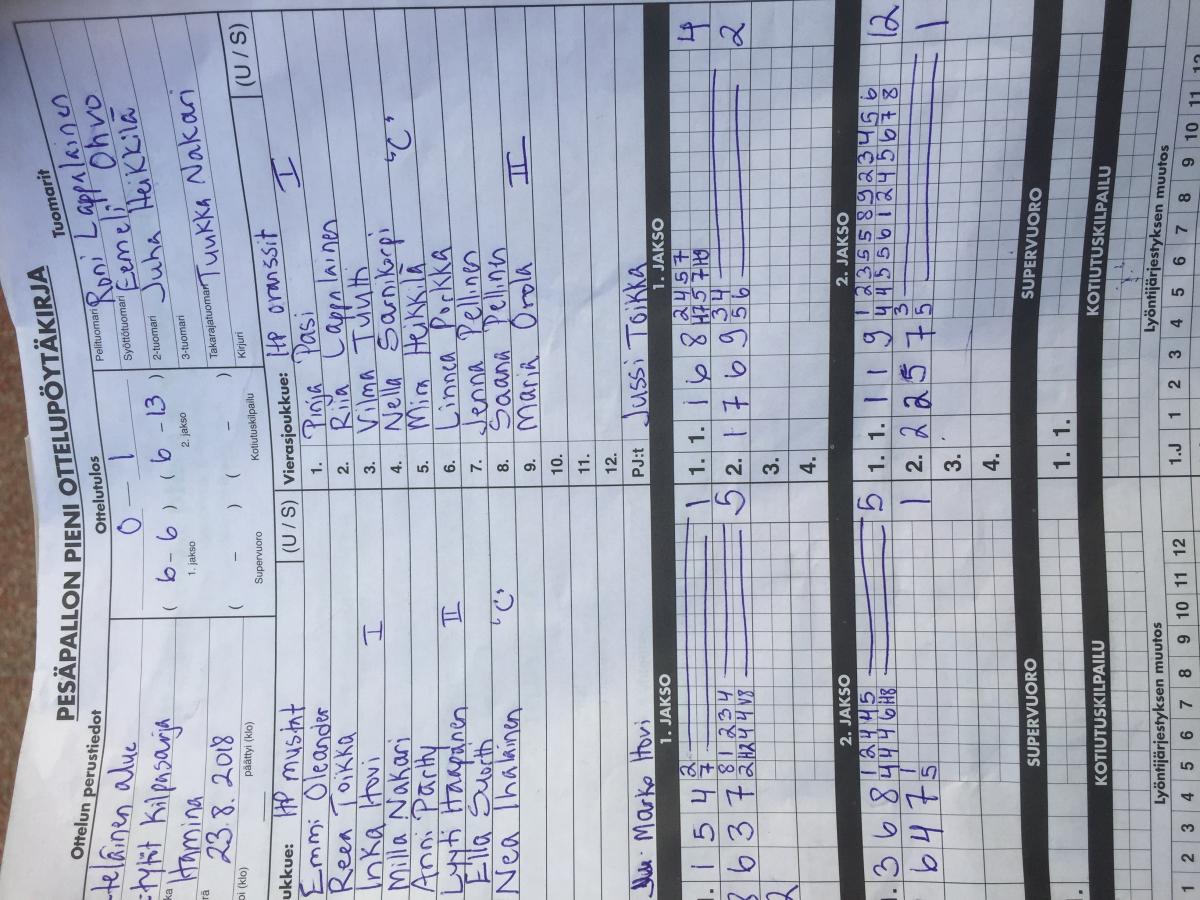 PESÄPALLON PIENI OTTELUPÖYTÄKIRJA
Ottelun perustiedot
teläinen alue
tytöt kilpasarja
Hamina
23.8.2018
päättyi (klo)
Ottelutulos
0 — 1
( 6 - 6 ) ( 6 - 13 )
1. jakso 2. jakso
( - ) ( - )
Supervuoro Kotiutuskilpailu
Tuomarit
Pelituomari Roni Lappalainen
Syöttötuomari Eemeli Ohvo
2-tuomari Juha Heikkilä
3-tuomari
Takarajatuomari Tuukka Nakari
Kirjuri
ukkue: HP mustat (U / S)
Emmi Oleander
Reea Toikka
Inka Hovi I
Milla Nakari
Anni Pärtty
Lyyti Haapanen II
Ella Suortti
Nea Ihalainen "C"
Marko Hovi
Vierasjoukkue: HP oranssit I (U / S)
1. Pinja Pasi
2. Riia Lappalainen
3. Vilma Tululti
4. Nella Sarnikorpi "C"
5. Mira Heikkilä
6. Linnea Porkka
7. Jenna Pellinen
8. Saana Pellinen II
9. Maria Orola
10.
11.
12.
PJ:t Jussi Toikka
1. JAKSO
1. 1 5 4 2 1
7
6 3 7 8 1 2 3 4 5
1. JAKSO
1. 1. 1 6 8 2 4 5 7 4
2. 1 7 6 9 3 4 2
5 6
3.
4.
2. JAKSO
1. 3 6 8 1 2 4 4 5 5
6 4 7 1 1
5
2. JAKSO
1. 1. 1 1 9 1 2 3 5 5 8 9 2 3 4 5 6 12
4 4 5 5 6 1 2 4 5 6 7 8
2. 2 2 5 7 3 1
5
3.
4.
SUPERVUORO
SUPERVUORO
1. 1.
KOTIUTUSKILPAILU
KOTIUTUSKILPAILU
Lyöntijärjestyksen muutos
1 2 3 4 5 6 7 8 9 10 11 12
Lyöntijärjestyksen muutos
1.J 1 2 3 4 5 6 7 8 9 10 11 12